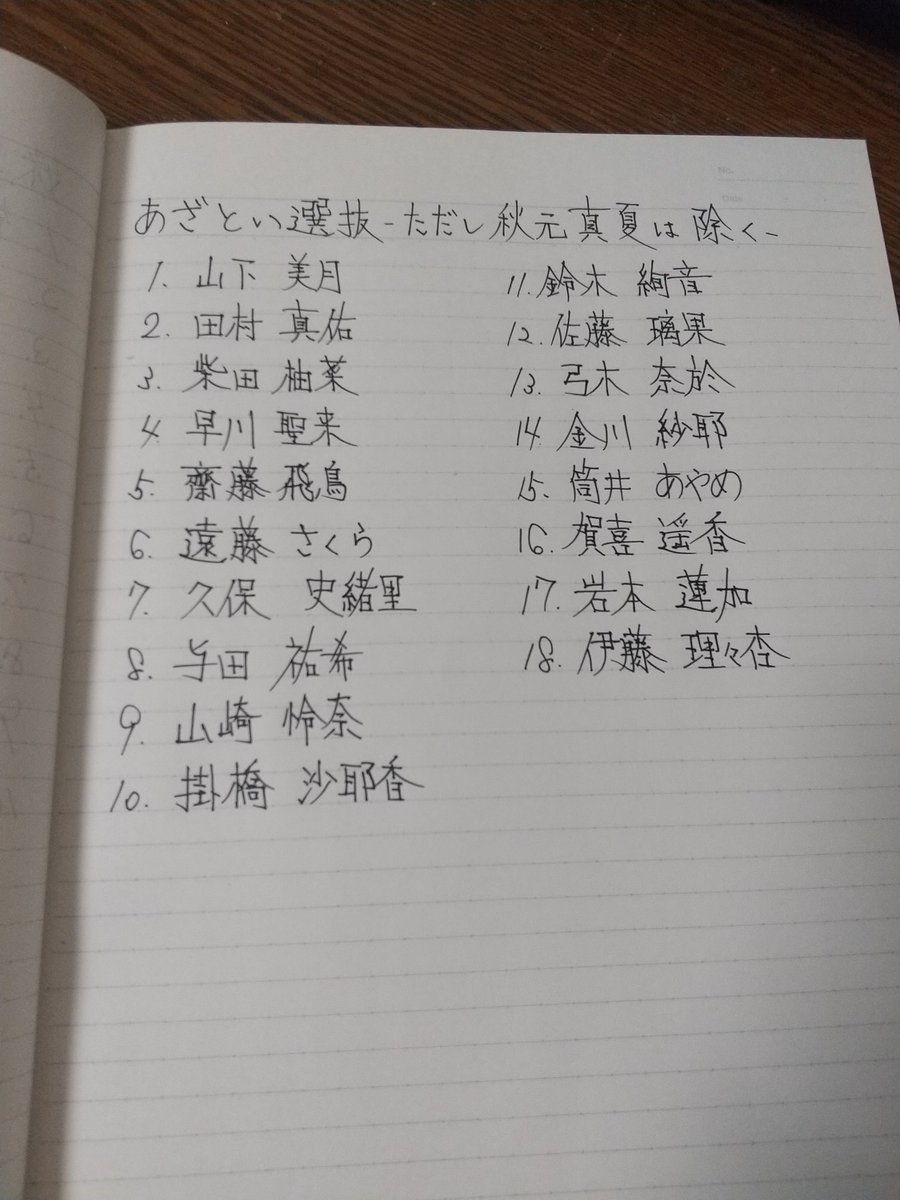 No.
Date
あざとい選抜-ただし秋元真夏は除く-
1. 山下 美月
2. 田村 真佑
3. 柴田 柚菜
4. 早川 聖来
5. 齋藤 飛鳥
6. 遠藤 さくら
7. 久保 史緒里
8. 与田 祐希
9. 山崎 怜奈
10. 掛橋 沙耶香
11. 鈴木 絢音
12. 佐藤 璃果
13. 弓木 奈於
14. 金川 紗耶
15. 筒井 あやめ
16. 賀喜 遥香
17. 岩本 蓮加
18. 伊藤 理々杏